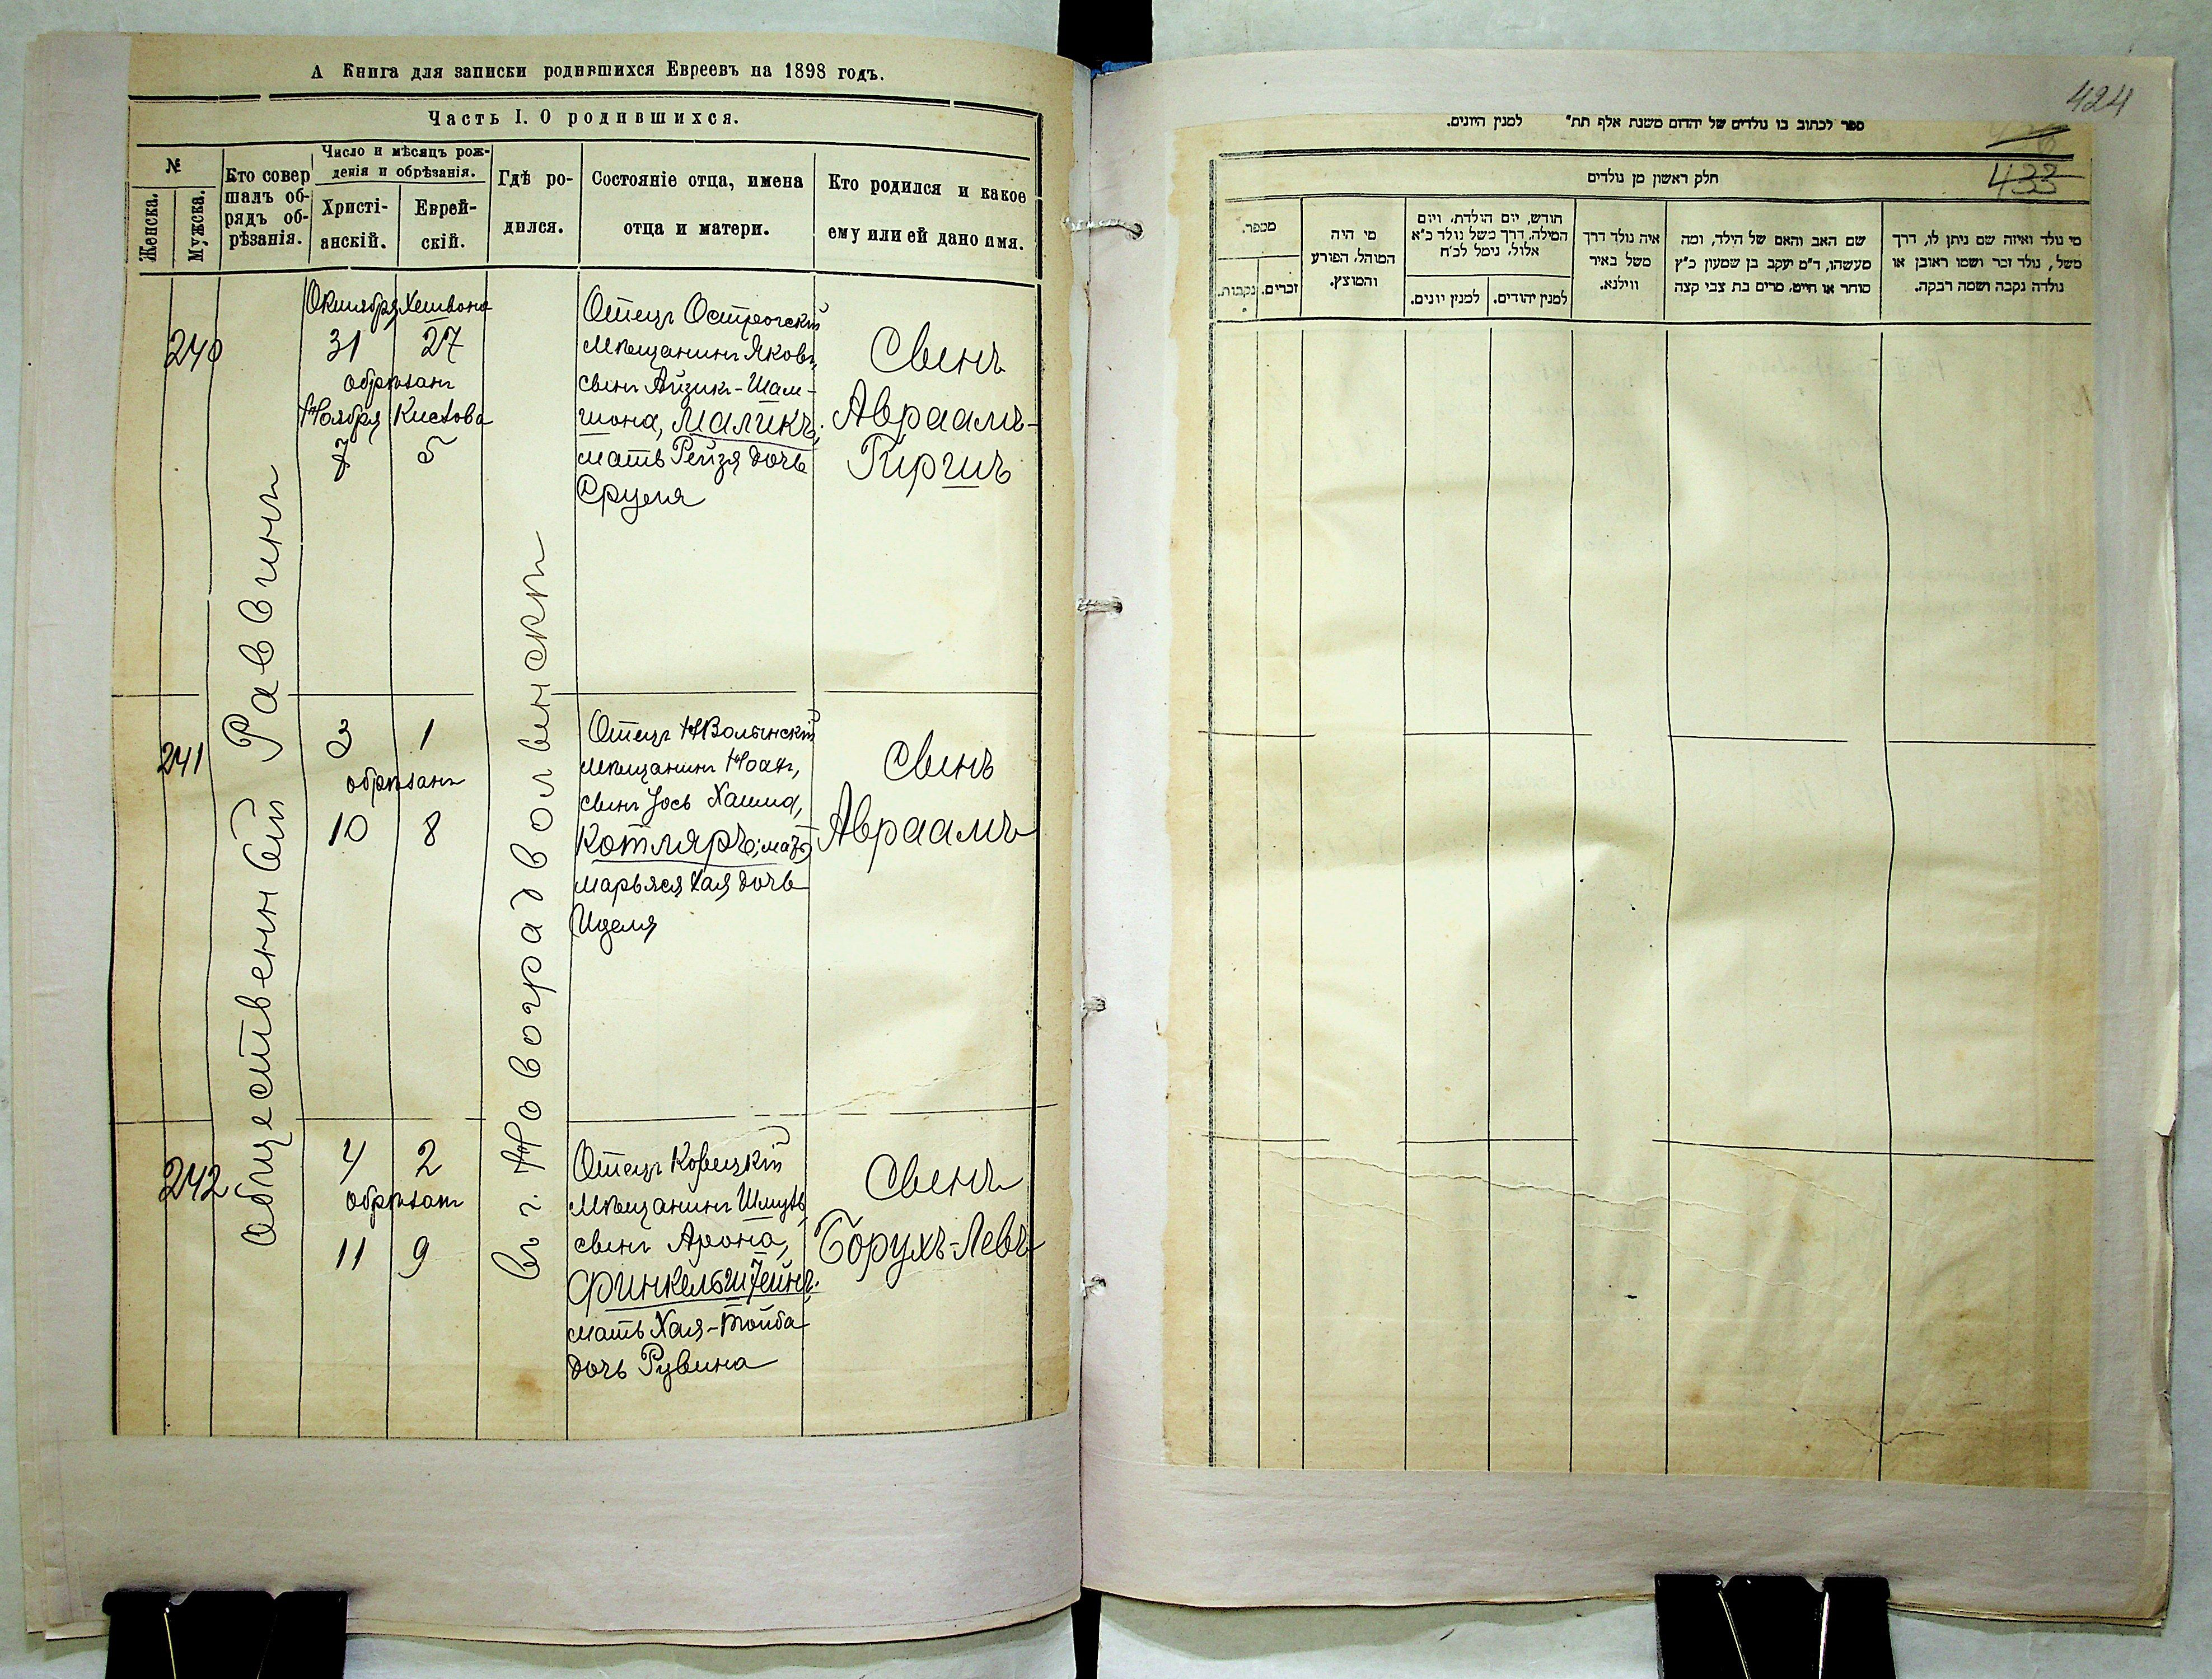 А Книга для записки родившихся Евреевъ на 1898 годъ.
Часть I. О родившихся.
№
Женска.
Мужска.
Кто совершалъ обрядъ обрѣзанія.
Число и мѣсяцъ рож-
денія и обрѣзанія.
Христі-
анскій.
Еврей-
скій.
Гдѣ ро-
дился.
Состояніе отца, имена
отца и матери.
Кто родился и какое
ему или ей дано имя.
Общественный Раввинъ
въ г. Новоградволынскѣ
240
Октября Хешвона
31 27
обрѣзанъ
Ноября Кислова
7 5
Отецъ Острогскій
мѣщанинъ Яковъ,
сынъ Айзик-Шам-
шона, Маликъ;
мать Рейзя дочь
Сруля
Сынъ
Авраамъ-
Гиршъ
241
3 1
обрѣзанъ
10 8
Отецъ НВолынскій
мѣщанинъ Ноах,
сынъ Іось Хаима,
Котляръ; мать
Марьяся Хая дочь
Иделя
Сынъ
Авраамъ
242
4 2
обрѣзанъ
11 9
Отецъ Корецкій
мѣщанинъ Шмуль
сынъ Арона,
Финкельштейнъ.
мать Хая-Тойба
дочь Рувина
Сынъ
Борухъ-Левъ
424
433
ספר לכתוב בו נולדים של יהדום משנת אלף תת" למנין היונים.
חלק ראשון מן נולדים
מספר.
נקבות.
זכרים.
מי היה
המוהל, הפורע
והמוצץ.
חודש, יום הולדת, ויום
המילה, דרך משל נולד כ"א
אלול, נימל לכ"ח
למנין יונים.
למנין יהודים.
איה נולד דרך
משל באיר
ווילנא.
שם האב והאם של הילד, ומה
מעשהו, ד"מ יעקב בן שמעון כ"ץ
סוחר או חייט, מרים בת צבי קצה
מי נולד ואיזה שם ניתן לו, דרך
משל, נולד זכר ושמו ראובן או
נולדה נקבה ושמה רבקה.